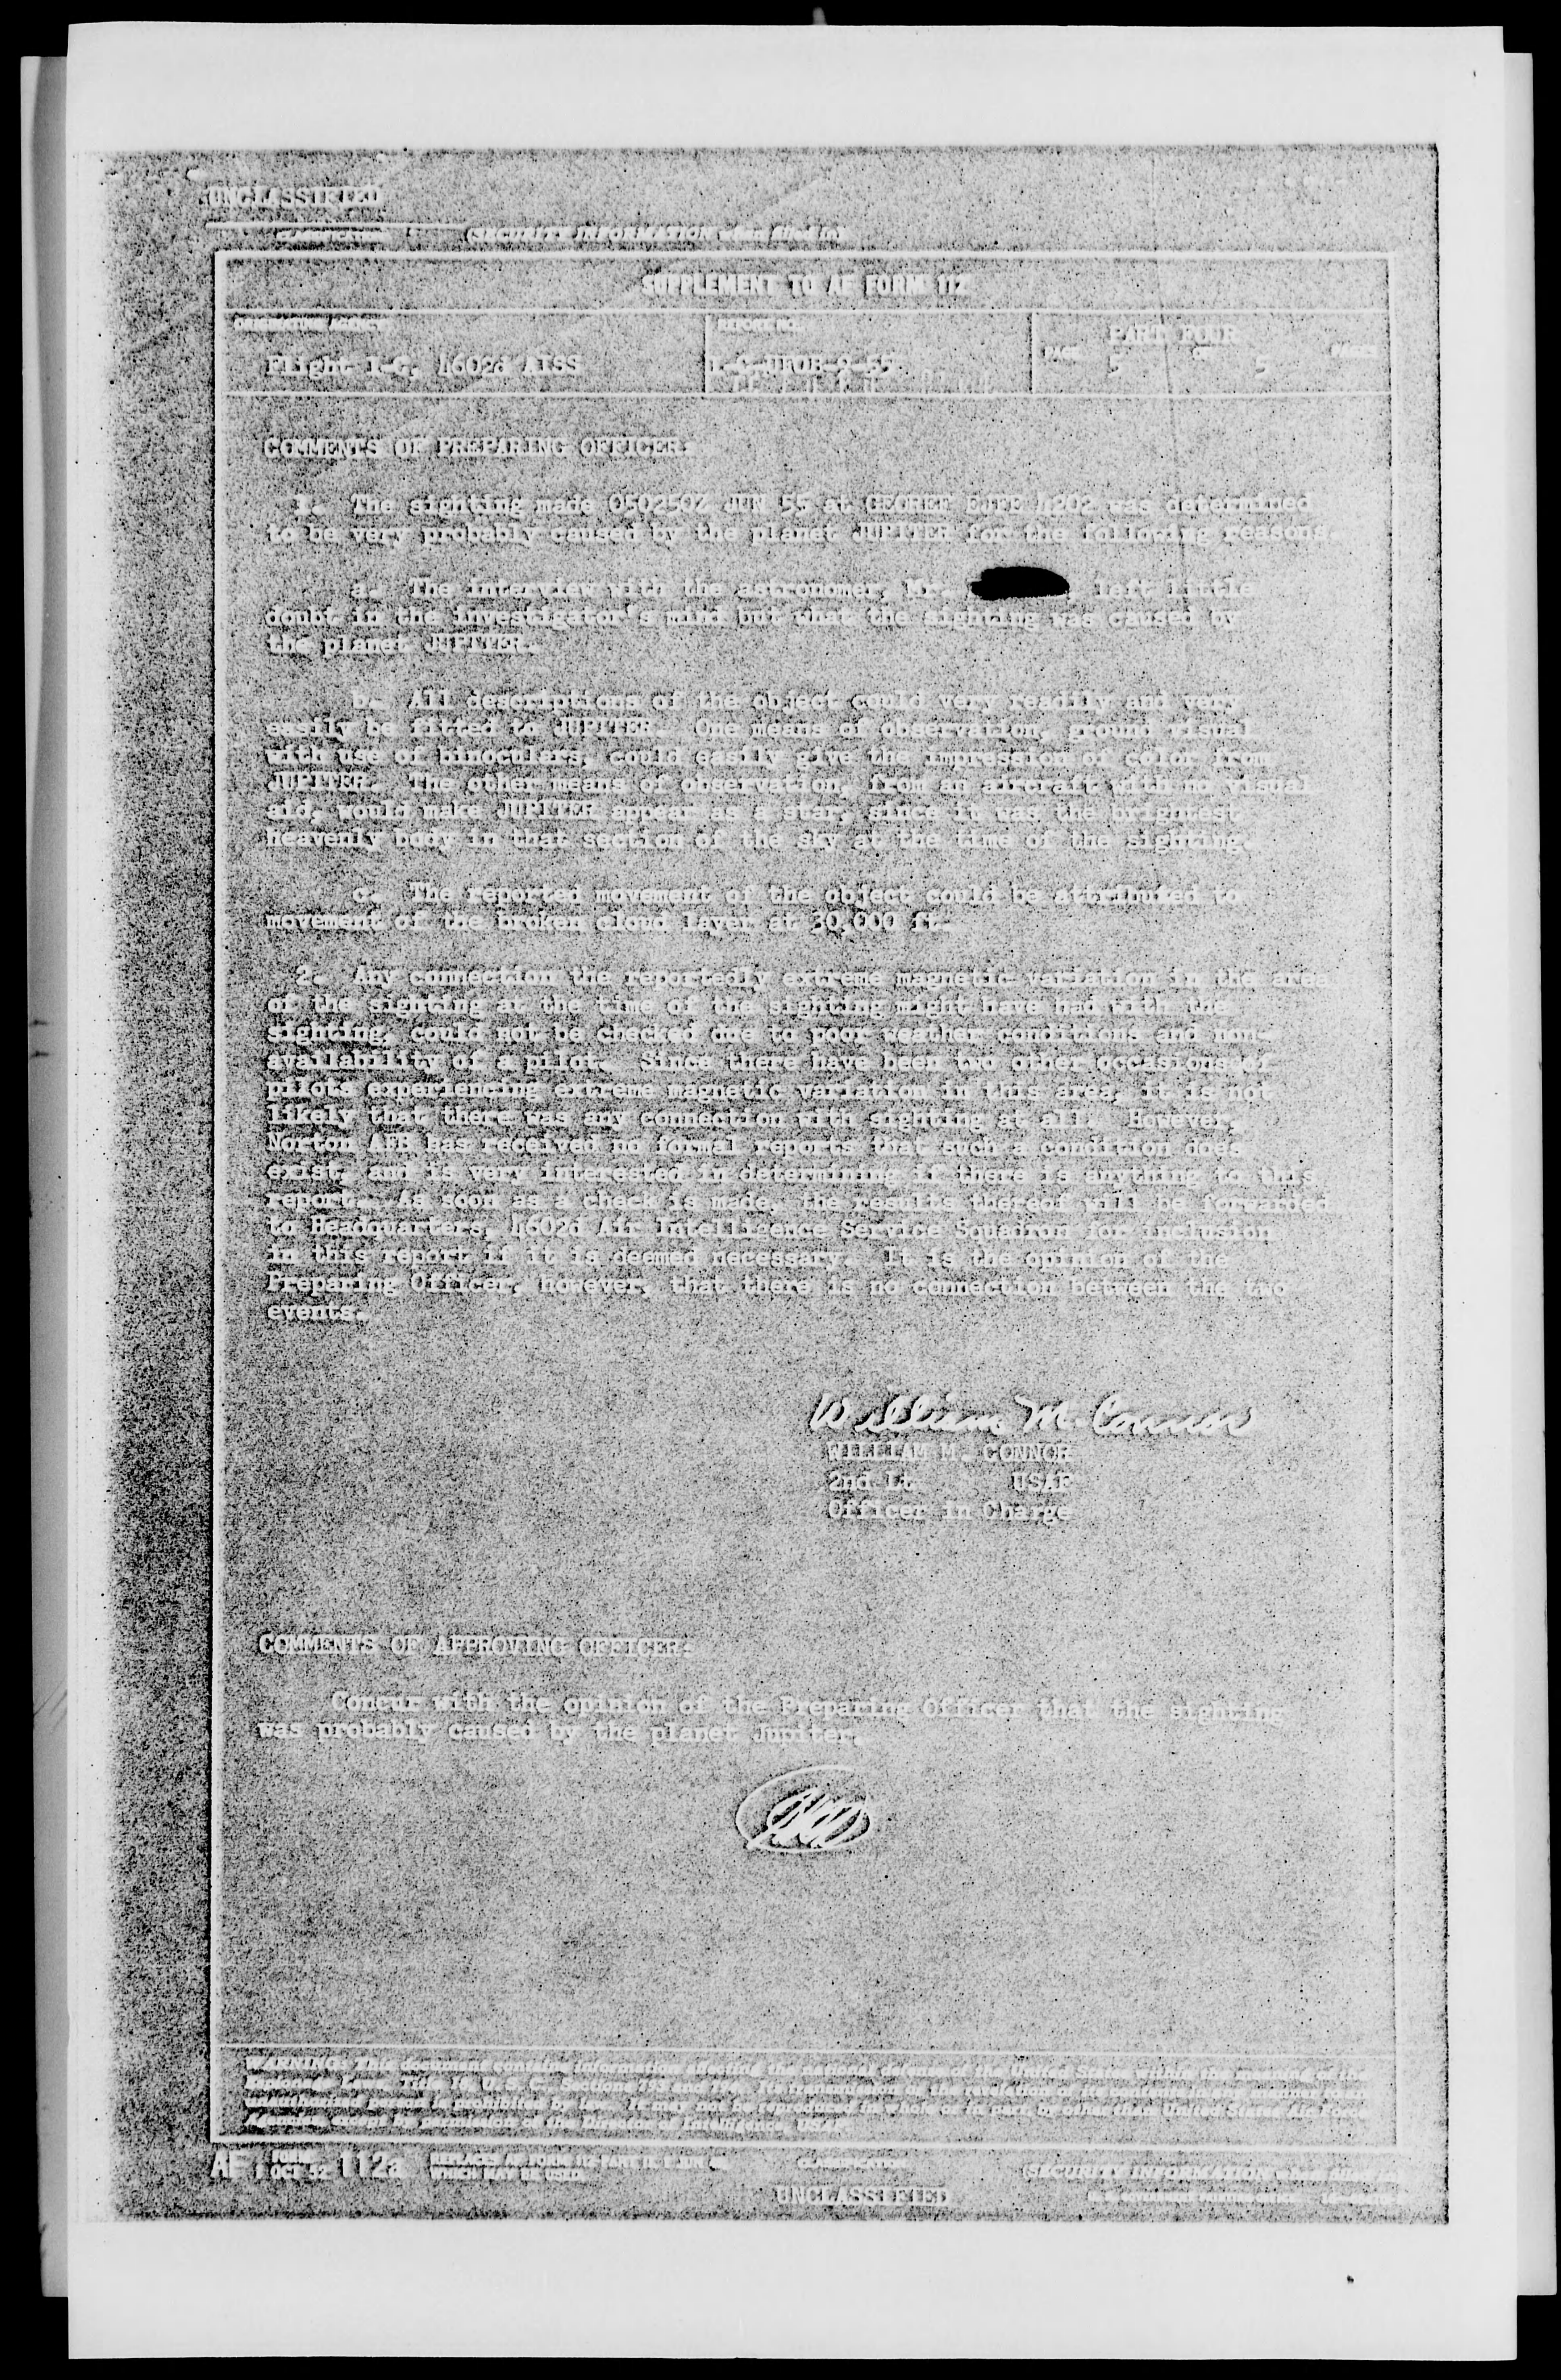 UNCLASSIFIED
CLASSIFICATION (SECURITY INFORMATION when filled in)
SUPPLEMENT TO AF FORM 112
ORIGINATING AGENCY REPORT NO. PART FOUR
Flight 1-G, 4602d AISS 1-G-UFOB-2-55 PAGE 5 OF 5 PAGES
COMMENTS OF PREPARING OFFICER:
1. The sighting made 050250Z JUN 55 at GEOREF EJFE 4202 was determined
to be very probably caused by the planet JUPITER for the following reasons.
a. The interview with the astronomer, Mr. , left little
doubt in the investigator's mind but what the sighting was caused by
the planet JUPITER.
b. All descriptions of the object could very readily and very
easily be fitted to JUPITER. One means of observation, ground visual
with use of binoculars, could easily give the impression of color from
JUPITER. The other means of observation, from an aircraft with no visual
aid, would make JUPITER appear as a star, since it was the brightest
heavenly body in that section of the sky at the time of the sighting.
c. The reported movement of the object could be attributed to
movement of the broken cloud layer at 30,000 ft.
2. Any connection the reportedly extreme magnetic variation in the area
of the sighting at the time of the sighting might have had with the
sighting, could not be checked due to poor weather conditions and non-
availability of a pilot. Since there have been two other occasions of
pilots experiencing extreme magnetic variation in this area, it is not
likely that there was any connection with sighting at all. However,
Norton AFB has received no formal reports that such a condition does
exist, and is very interested in determining if there is anything to this
report. As soon as a check is made, the results thereof will be forwarded
to Headquarters, 4602d Air Intelligence Service Squadron for inclusion
in this report if it is deemed necessary. It is the opinion of the
Preparing Officer, however, that there is no connection between the two
events.
William M. Connor
WILLIAM M. CONNOR
2nd Lt USAF
Officer in Charge
COMMENTS OF APPROVING OFFICER:
Concur with the opinion of the Preparing Officer that the sighting
was probably caused by the planet Jupiter.
WARNING: This document contains information affecting the national defense of the United States within the meaning of the
Espionage Laws, Title 18, U. S. C., Sections 793 and 794. Its transmission or the revelation of its contents in any manner to an
unauthorized person is prohibited by law. It may not be reproduced in whole or in part, by other than United States Air Force
Agencies, except by permission of the Director of Intelligence, USAF.
AF FORM 1 OCT 52 112a REPLACES AF FORM 112-PART II, 1 JUN 48,
WHICH MAY BE USED. CLASSIFICATION (SECURITY INFORMATION when filled in)
UNCLASSIFIED